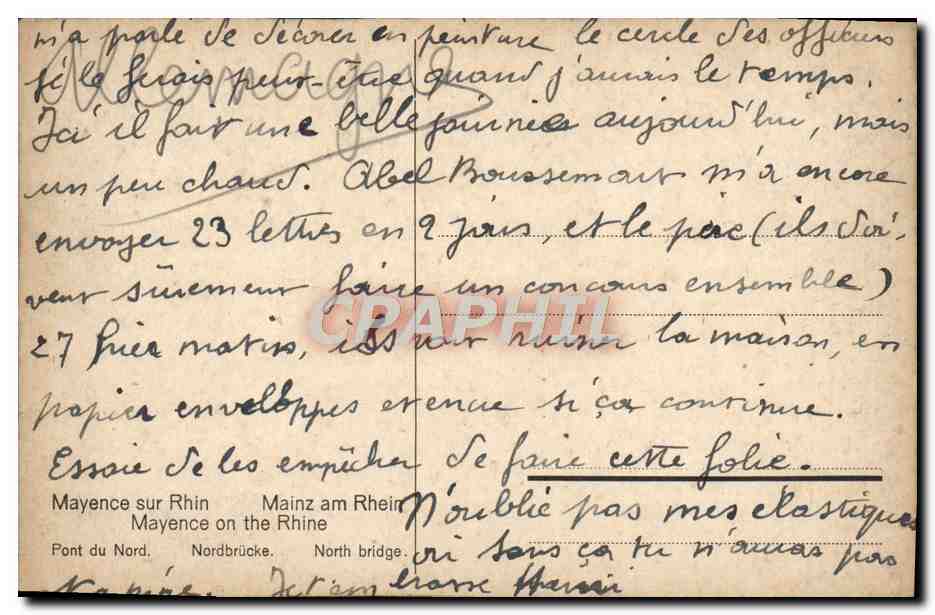 m'a parlé de décorer en peinture le cercle des officiers
je le ferais peut-être quand j'aurais le temps.
Ici il fait une belle journée aujourd'hui, mais
un peu chaud. Abel Boussemart m'a encore
envoyer 23 lettres en 2 jours, et le père (ils doi-
vent sûrement faire un concours ensemble)
27 hier matin, ils vont ruiner la maison, en
papier enveloppes et encre si ça continue.
Essaie de les empêcher de faire cette folie.
N'oublie pas mes élastiques
Mayence sur Rhin Mainz am Rhein
Mayence on the Rhine
Pont du Nord. Nordbrücke. North bridge.
ou sans ça tu n'auras pas
Je t'embrasse Henri
CPAPHIL